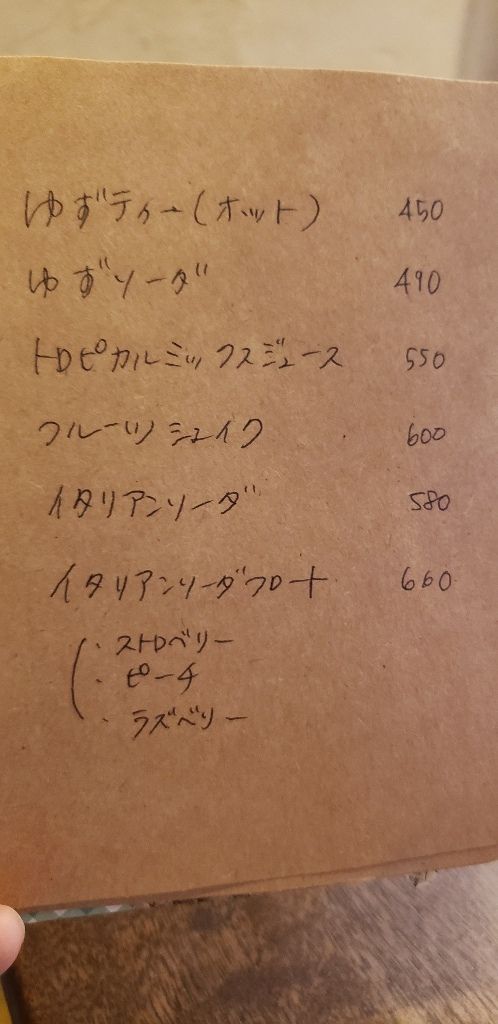 ゆずティー(ホット) 450
ゆずソーダ 490
トロピカルミックスジュース 550
フルーツシェイク 600
イタリアンソーダ 580
イタリアンソーダフロート 660
・ストロベリー
・ピーチ
・ラズベリー